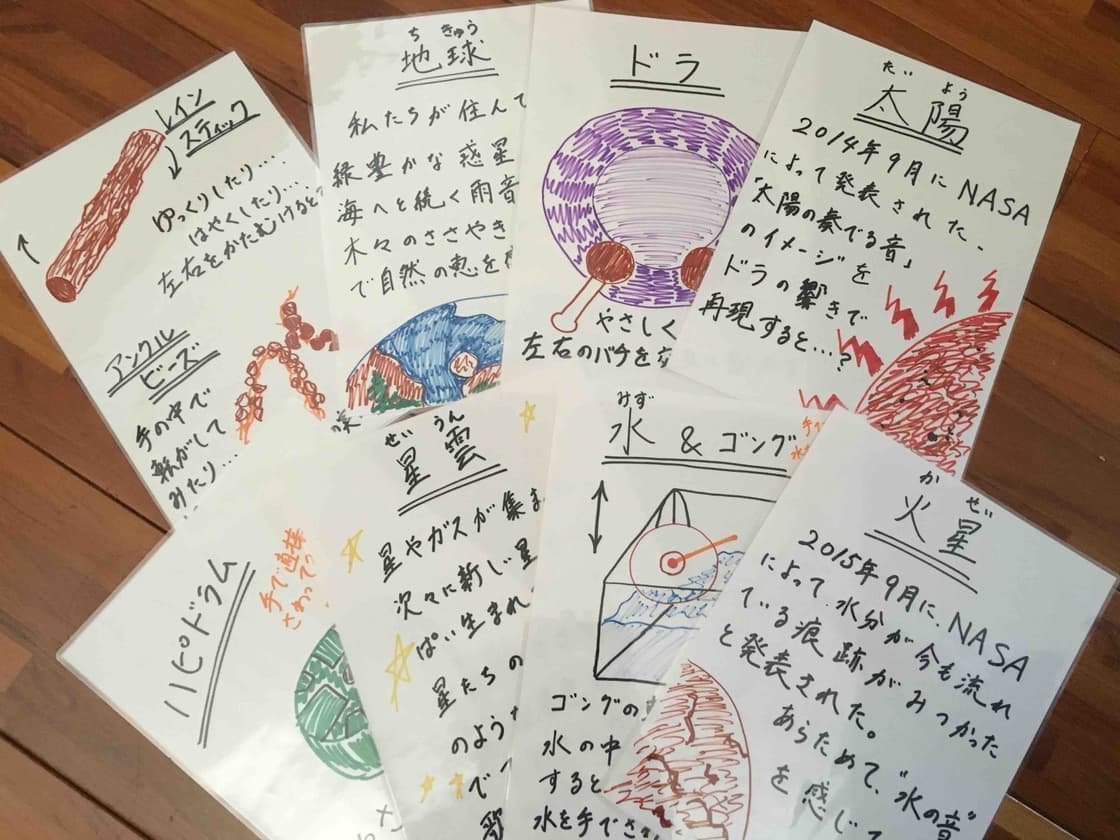 レイン
スティック
ゆっくりしたり‥‥
はやくしたり‥
左右をかたむけると
アンクル
ビーズ
手の中で
転がして
みたり‥‥
ち きゅう
地球
私たちが住んで
緑豊かな惑星
海へと続く雨音
木々のささやき
で自然の恵を
ドラ
やさしく
左右のバチを
たい よう
太陽
2014年9月にNASA
によって発表された、
「太陽の奏でる音」
のイメージを
ドラの響きで
再現すると…?
ハピドラム
手で直接
さわってっ
せい うん
星雲
星やガスが集ま
次々に新しい星
ぱい生まれ
星たちの
のような
で
みず
水 & ゴング
ゴングの
水の中
すると
水を手でさ
か せい
火星
2015年9月に、NASA
によって水分が今も流れ
ている痕跡がみつかった
と発表された。
あらためて、"水の音"
を感じて